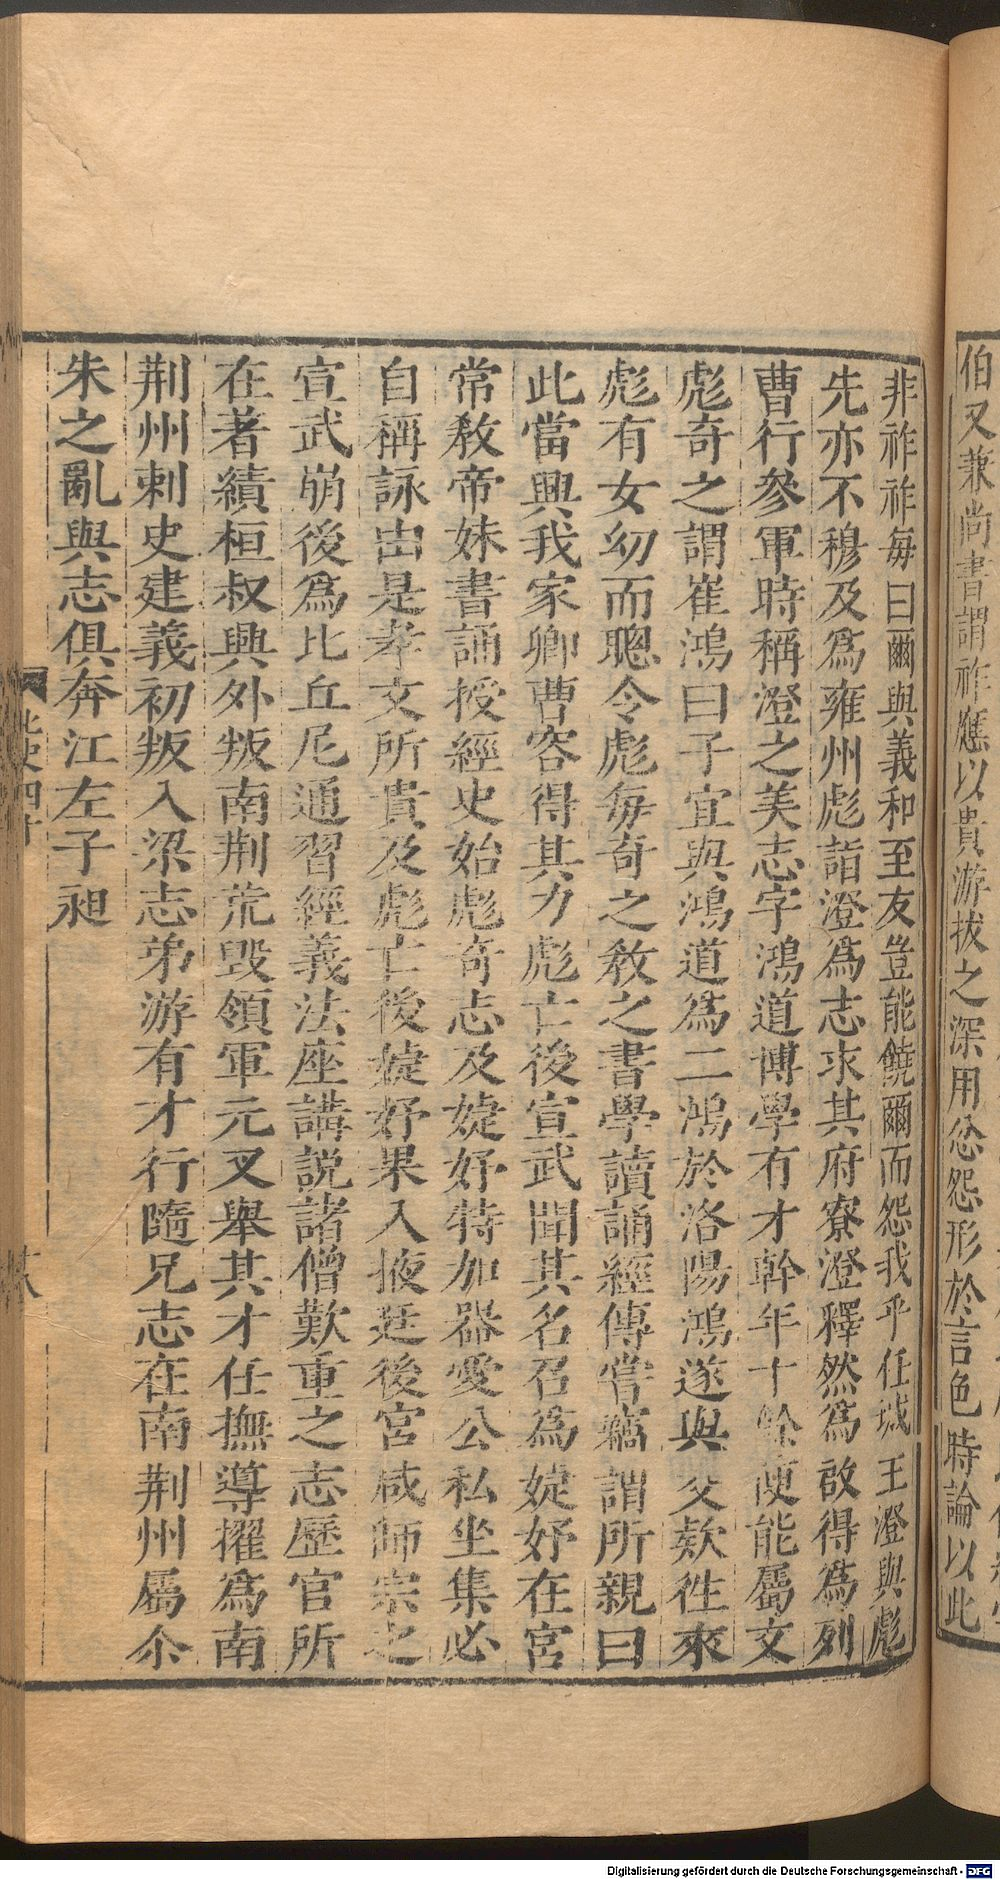 伯又兼尚書謂祚應以貴游拔之深用忿怨形於言色時論以此
非祚祚每曰爾與義和至友豈能饒爾而怨我乎任城王澄與彪
先亦不穆及爲雍州彪詣澄爲志求其府寮澄釋然爲啟得爲列
曹行參軍時稱澄之美志字鴻道博學有才幹年十餘便能屬文
彪奇之謂崔鴻曰子宜與鴻道爲二鴻於洛陽鴻遂與交欵徃來
彪有女幼而聰令彪每奇之敎之書學讀誦經傳嘗竊謂所親曰
此當興我家卿曹容得其力彪亡後宣武聞其名召爲婕妤在宮
常敎帝妹書誦授經史始彪奇志及婕妤特加器愛公私坐集必
自稱詠由是孝文所貴及彪亡後婕妤果入掖廷後宮咸師宗之
宣武崩後爲比丘尼通習經義法座講説諸僧歎重之志歷官所
在著績桓叔興外叛南荆荒毀領軍元叉舉其才任撫導擢爲南
荆州刺史建義初叛入梁志弟游有才行隨兄志在南荆州屬尒
朱之亂與志俱奔江左子昶
北史四十
十八
Digitalisierung gefördert durch die Deutsche Forschungsgemeinschaft - DFG